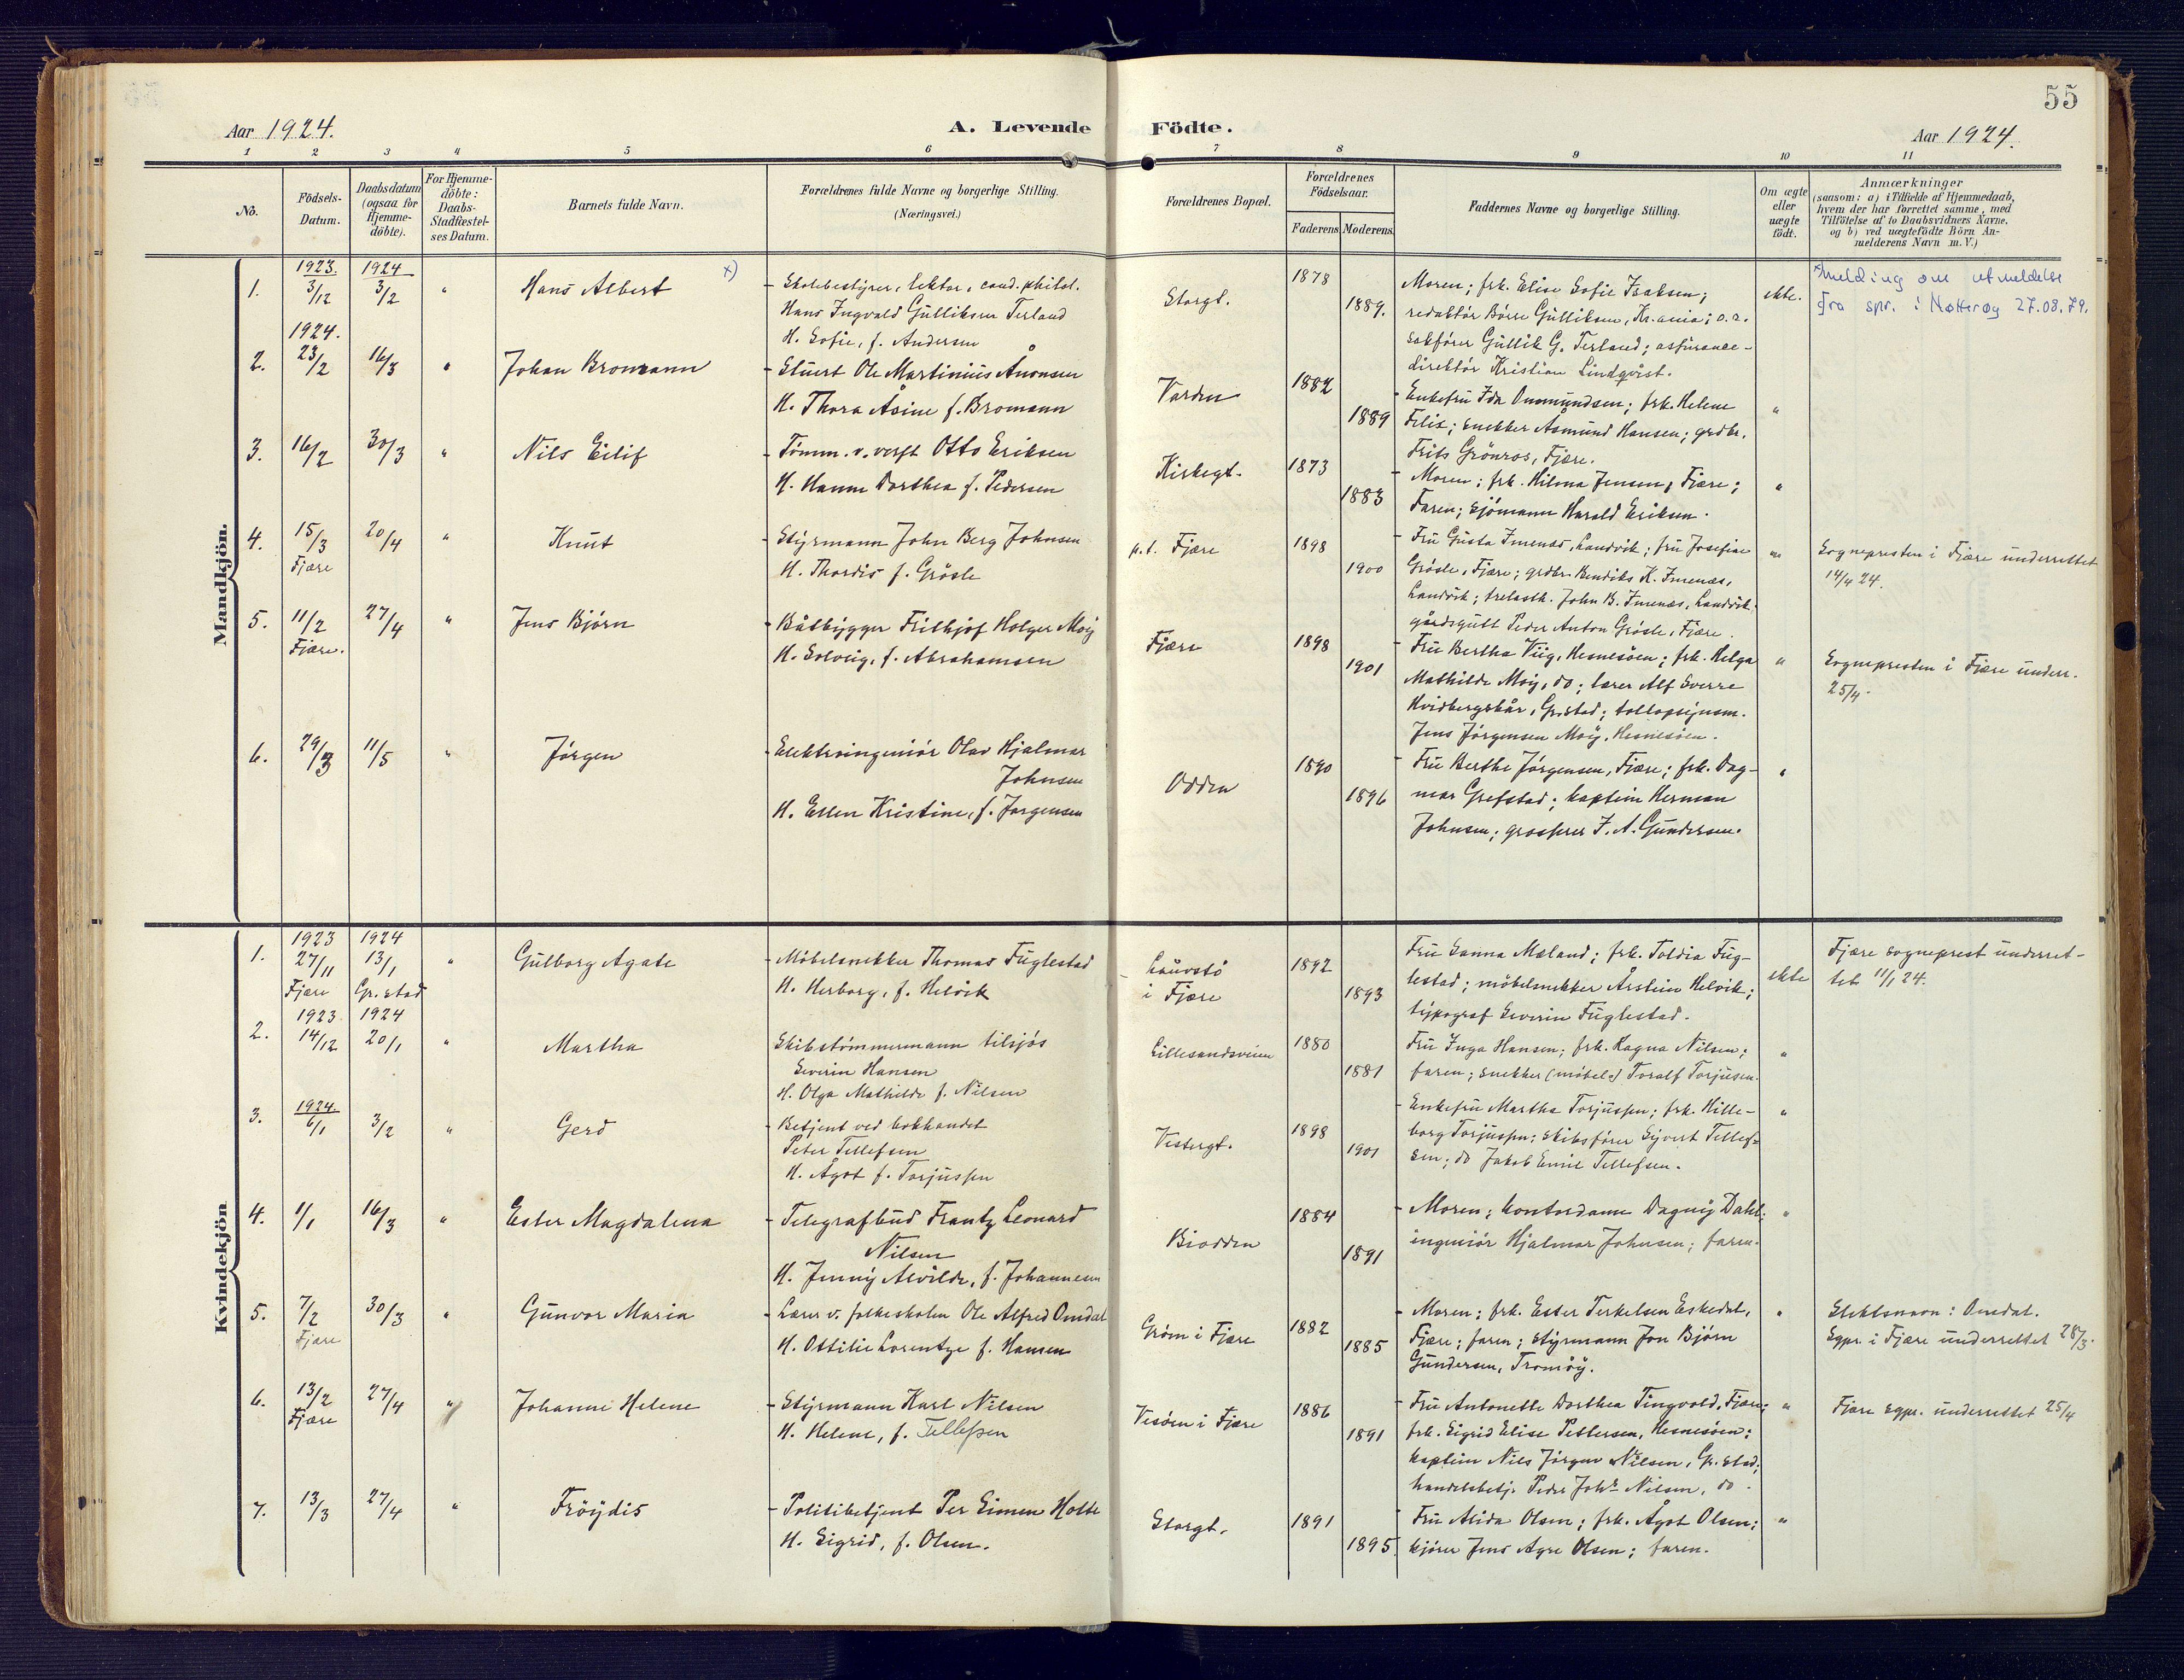 55
Aar 1924.
A. Levende Födte.
Aar 1924.
1 2 3 4 5 6 7 8 9 10 11
No.
Födsels-Datum.
Daabsdatum (ogsaa for Hjemme-döbte).
For Hjemme-döbte: Daabs-Stadfæstel-ses Datum.
Barnets fulde Navn.
Forældrenes fulde Navne og borgerlige Stilling.
(Næringsvei.)
Forældrenes Bopæl.
Forældrenes Födselsaar.
Faderens Moderens
Faddernes Navne og borgerlige Stilling.
Om ægte eller uægte födt.
Anmærkninger
(saasom: a) i Tilfælde af Hjemmedaab,
hvem der har forrettet samme, med
Tilföielse af to Daabsvidners Navne,
og b) ved uægtefödte Börn An-
melderens Navn m. V.)
Mandkjön.
1. 1923. 3/12 1924 3/2 " Hans Albert x)
- Skolebestyrer, lektor, cand. philol.
Hans Ingvald Gulliksen Terland
H. Sofie, f. Andersen
Storgt. 1878 1889.
Moren; frk. Elise Sofie Isaksen;
redaktør Börre Gulliksen, Kr.ania; o.r.
sakfører Gullik G. Terland; assurance-
direktör Kristian Lindqvist.
ekte.
x) melding om utmeldelse
fra spr. i Nøtterøy 27.08.79.
2. 1924. 23/2 16/3 " Johan Bromann
- Stuert Ole Martinius Aanonsen
H. Thora Åsine f. Bromann
Varden 1882 1889
- Enkefru Ida Ommundsen; frk. Helene
Felix; snekker Åsmund Hansen; grdbr.
Frits Grönros, Fjære.
"
3. 16/2 30/3 " Nils Eilif
- Tömm. v. verft Otto Eriksen
H. Hanne Dorthea f. Pedersen
Kirkegt. 1873 1883
- Moren; frk. Hilma Jensen, Fjære;
Faren; sjömann Harald Eriksen.
"
4. 15/3 Fjære 20/4 " Knut
- Styrmann John Berg Johnsen
H. Thordis f. Grösle
p.t. Fjære 1898 1900
- Fru Gusta Imenes, Landvik; fru Josefine
Grösle, Fjære; grdbr. Bendiks K. Imenæs,
Landvik; trelasth. John B. Imenæs, Landvik;
gårdsgutt Peder Anton Grösle, Fjære.
"
Sognepresten i Fjære underrettet
14/4 24.
5. 11/2 Fjære. 27/4 " Jens Bjørn
- Båtbygger Frithjof Holger Moy
H. Solveig, f. Abrahamsen
Fjære 1898 1901
- Fru Bertha Viig, Hesnesöen; frk. Helga
Mathilde Moy, do; lærer Alf Sverre
Kvidbergskår, Gr.stad; tollopsynsm.
Jens Jörgensen Moy, Hesnesöen.
"
Sognepresten i Fjære underr.
25/4.
6. 29/3 11/5 " Jörgen
- Elektroingeniör Olav Hjalmar
Johnsen
H. Ellen Kristine, f. Jørgensen
Odden 1890 1896
- Fru Berthe Jörgensen, Fjære; frk. Dag-
mar Grefstad; kaptein Herman
Johnsen; grosserer J. A. Gundersen.
"
Kvindekjön
1. 1923 27/11 Fjære 1924 13/1 Gr.stad " Gulborg Agate
- Möbelsnekker Thomas Fuglestad
H. Herborg, f. Helvik
Lauvstö
i Fjære 1892 1893
Fru Sanna Mæland; frk. Toldia Fug-
lestad; möbelsnekker Årstein Helvik;
typograf Severin Fuglestad.
ekte
Fjære sogneprest underret-
tet 11/1 24.
2. 1923 14/12 1924 20/1 " Martha
Skibstömmermann tilsjös
Severin Hansen
H. Olga Mathilde f. Nilsen
Lillesandsveien 1880 1881
Fru Inga Hansen; frk. Ragna Nilsen;
faren; snekker (möbels) Toralf Torjusen.
"
3. 1924 6/1 3/2 " Gerd
- Betjent ved bokhandel
Peter Tellefsen
H. Ågot f. Torjussen
Vestergt. 1898 1901
- Enkefru Martha Torjussen; frk. Hille-
borg Torjussen; skibsfører Sivert Tellef-
sen; do Jakob Emil Tellefsen.
"
4. 1/1 16/3 " Ester Magdalena
- Telegrafbud Frantz Leonard
Nilsen
H. Jenny Alvilde, f. Johannesen
Biodden 1884 1891
- Moren; kontordame Dagny Dahl;
ingeniör Hjalmar Johnsen; faren.
"
5. 7/2 Fjære 30/3 " Gunvor Maria
- Lærer v. folkeskolen Ole Alfred Omdal
H. Ottilie Lorentze f. Hansen
Grøm i Fjære 1882 1885
- Moren; frk. Ester Terkelsen Eskedal,
Fjære; faren; styrmann Jon Bjørn
Gundersen, Tromöy.
"
Slektsnavn: Omdal.
Sgpr. i Fjære underrettet 28/3.
6. 13/2 Fjære 27/4 " Johanne Helene
- Styrmann Karl Nilsen
H. Helene, f. Tellefsen
Vesöen i Fjære 1886 1891
- Fru Antonette Dorthea Tingvold, Fjære;
frk. Sigrid Elise Pettersen, Hesnesöen;
kaptein Nils Jörgen Nilsen, Gr.stad;
handelsbetj. Peder Johs Nilsen, do.
"
Fjære sgpr. underrettet 25/4
7. 13/3 27/4 " Fröydis
- Politibetjent Per Simen Holte
H. Sigrid, f. Olsen.
Storgt. 1891 1895
- Fru Alida Olsen; frk. Ågot Olsen;
kjører Jens Agre Olsen; faren.
"